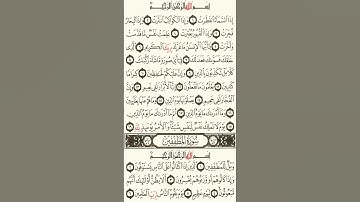 بِسْمِ اللَّهِ الرَّحْمَٰنِ الرَّحِيمِ
إِذَا السَّمَاءُ انفَطَرَتْ ۝ وَإِذَا الْكَوَاكِبُ انتَثَرَتْ ۝ وَإِذَا الْبِحَارُ
فُجِّرَتْ ۝ وَإِذَا الْقُبُورُ بُعْثِرَتْ ۝ عَلِمَتْ نَفْسٌ مَّا قَدَّمَتْ
وَأَخَّرَتْ ۝ يَٰأَيُّهَا الْإِنسَٰنُ مَا غَرَّكَ بِرَبِّكَ الْكَرِيمِ ۝ الَّذِي
خَلَقَكَ فَسَوَّىٰكَ فَعَدَلَكَ ۝ فِي أَيِّ صُورَةٍ مَّا شَاءَ رَكَّبَكَ ۝
كَلَّا بَلْ تُكَذِّبُونَ بِالدِّينِ ۝ وَإِنَّ عَلَيْكُمْ لَحَٰفِظِينَ ۝ كِرَامًا
كَٰتِبِينَ ۝ يَعْلَمُونَ مَا تَفْعَلُونَ ۝ إِنَّ الْأَبْرَارَ لَفِي نَعِيمٍ ۝ وَإِنَّ
الْفُجَّارَ لَفِي جَحِيمٍ ۝ يَصْلَوْنَهَا يَوْمَ الدِّينِ ۝ وَمَا هُمْ عَنْهَا بِغَائِبِينَ
۝ وَمَا أَدْرَىٰكَ مَا يَوْمُ الدِّينِ ۝ ثُمَّ مَا أَدْرَىٰكَ مَا يَوْمُ الدِّينِ ۝
يَوْمَ لَا تَمْلِكُ نَفْسٌ لِّنَفْسٍ شَيْئًا وَالْأَمْرُ يَوْمَئِذٍ لِّلَّهِ ۝
سُورَةُ الْمُطَفِّفِينَ
بِسْمِ اللَّهِ الرَّحْمَٰنِ الرَّحِيمِ
وَيْلٌ لِّلْمُطَفِّفِينَ ۝ الَّذِينَ إِذَا اكْتَالُوا عَلَى النَّاسِ يَسْتَوْفُونَ ۝
وَإِذَا كَالُوهُمْ أَو وَّزَنُوهُمْ يُخْسِرُونَ ۝ أَلَا يَظُنُّ أُولَٰئِكَ أَنَّهُم
مَّبْعُوثُونَ ۝ لِيَوْمٍ عَظِيمٍ ۝ يَوْمَ يَقُومُ النَّاسُ لِرَبِّ الْعَٰلَمِينَ ۝